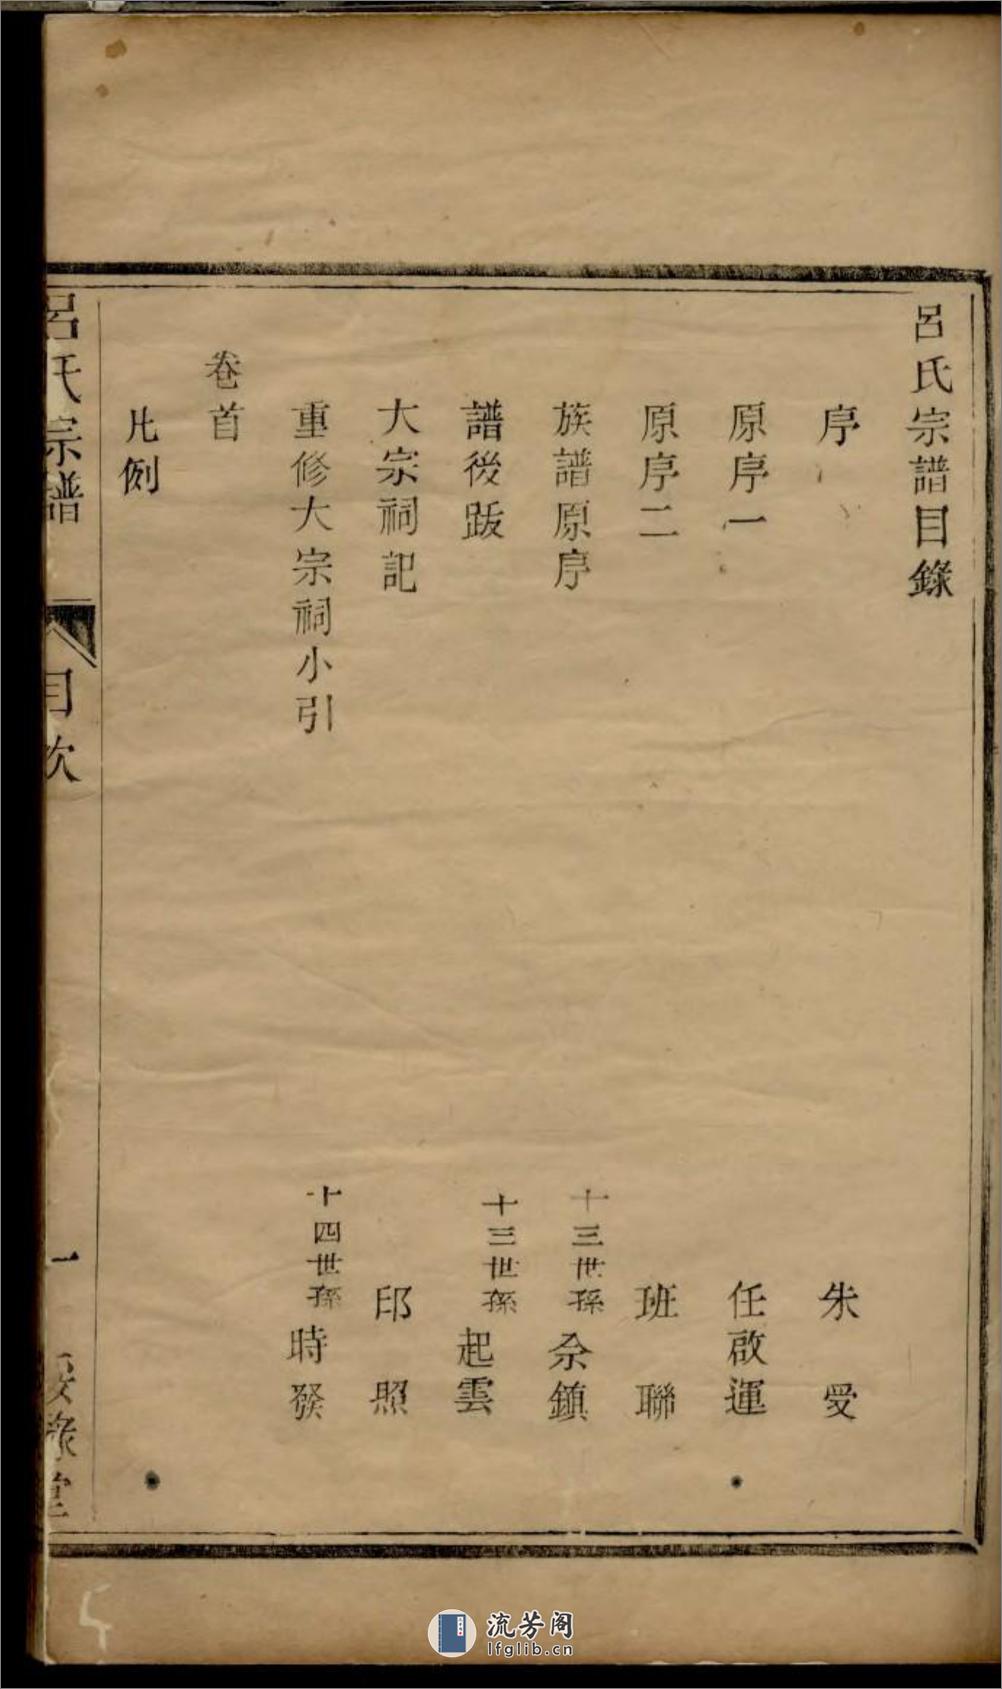 呂氏宗譜目錄
序 朱受
原序一 任啟運
原序二 班聯
族譜原序 十三世孫 佘鎮
譜後跋 十三世孫 起雲
大宗祠記 邱照
重修大宗祠小引 十四世孫 時發
卷首
凡例
呂氏宗譜 目次 一
流芳阁
lfglib.cn